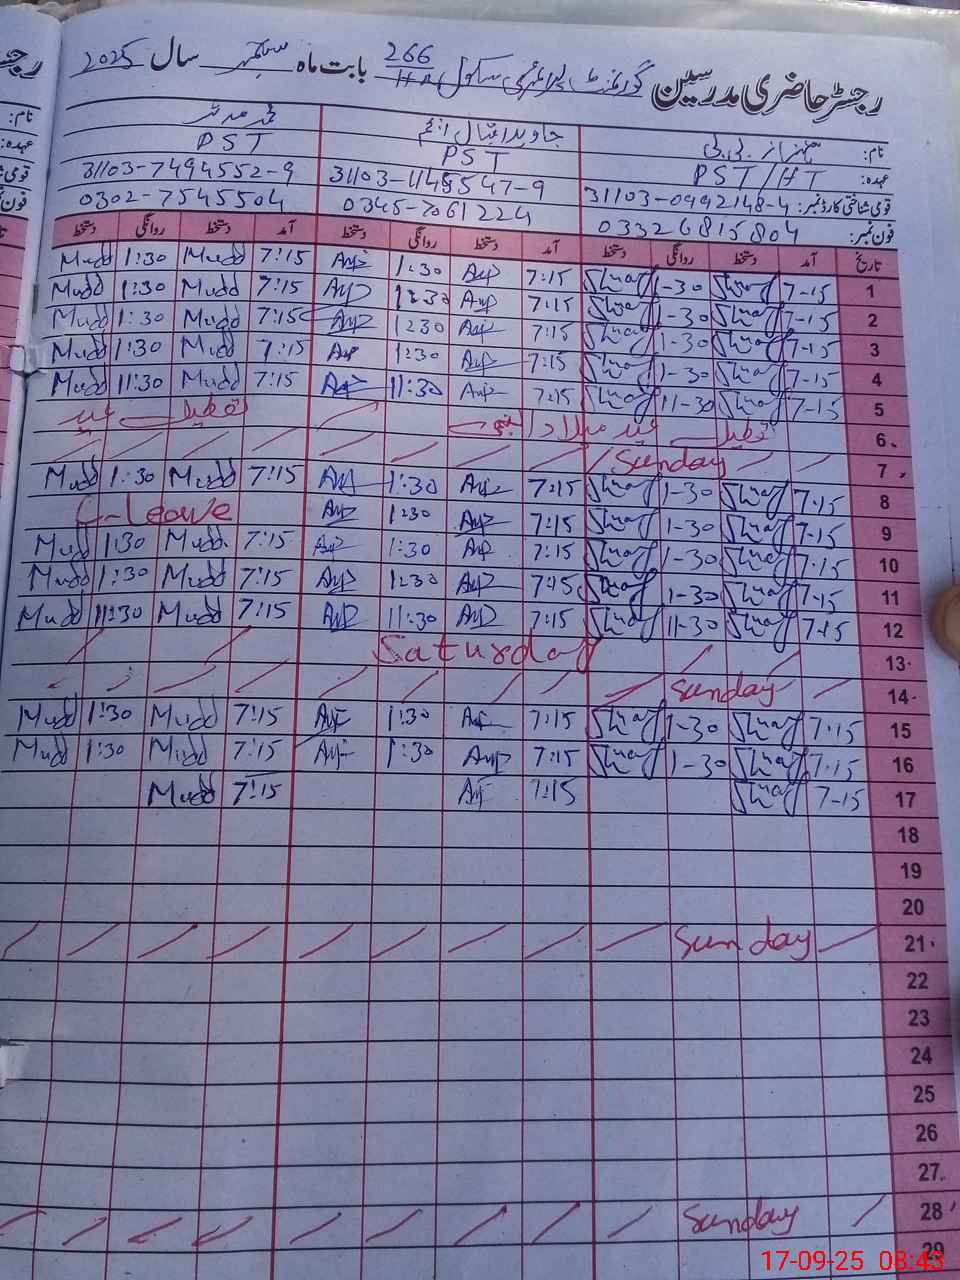 رجسٹر حاضری مدرسین گورنمنٹ پرائمری سکول 266/HR بابت ماہ ستمبر سال 2025
نام: شہناز بی بی جاوید اقبال انجم محمد مدثر
عہدہ: PST/HT PST PST
قومی شناختی کارڈ نمبر: 31103-0992148-4 31103-1145547-9 31103-7494552-9
فون نمبر: 03326815804 0345-7061224 0302-7545504
تاریخ آمد دستخط روانگی دستخط آمد دستخط روانگی دستخط آمد دستخط روانگی دستخط
1 7-15 1-30 7:15 1:30 7:15 Mudd 1:30 Mudd
2 7-15 1-30 7:15 1:30 7:15 Mudd 1:30 Mudd
3 7-15 1-30 7:15 1:30 7:15 Mudd 1:30 Mudd
4 7-15 1-30 7:15 1:30 7:15 Mudd 1:30 Mudd
5 7-15 11-30 7:15 11:30 7:15 Mudd 11:30 Mudd
6 تعطیل عید میلاد النبی تعطیل عید
7 Sunday
8 7-15 1-30 7:15 1:30 7:15 Mudd 1:30 Mudd
9 7-15 1-30 7:15 1:30 C-leave
10 7:15 1-30 7:15 1:30 7:15 Mudd 1:30 Mudd
11 7-15 1-30 7:15 1:30 7:15 Mudd 1:30 Mudd
12 7-15 11-30 7:15 11:30 7:15 Mudd 11:30 Mudd
13 Saturday
14 Sunday
15 7:15 1-30 7:15 1:30 7:15 Mudd 1:30 Mudd
16 7:15 1-30 7:15 1:30 7:15 Mudd 1:30 Mudd
17 7-15 7:15 7:15 Mudd
18
19
20
21 Sunday
22
23
24
25
26
27
28 Sunday
29
17-09-25 08:43